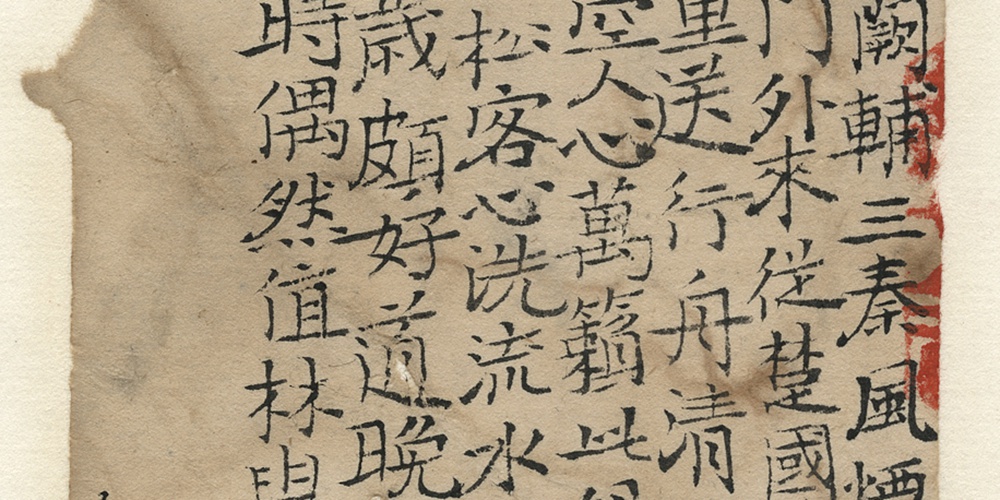 闕輔三秦風煙
門外來從楚國
里送行舟清
空人心萬籟此
松客心洗流水
歲頗好道晚
時偶然值林